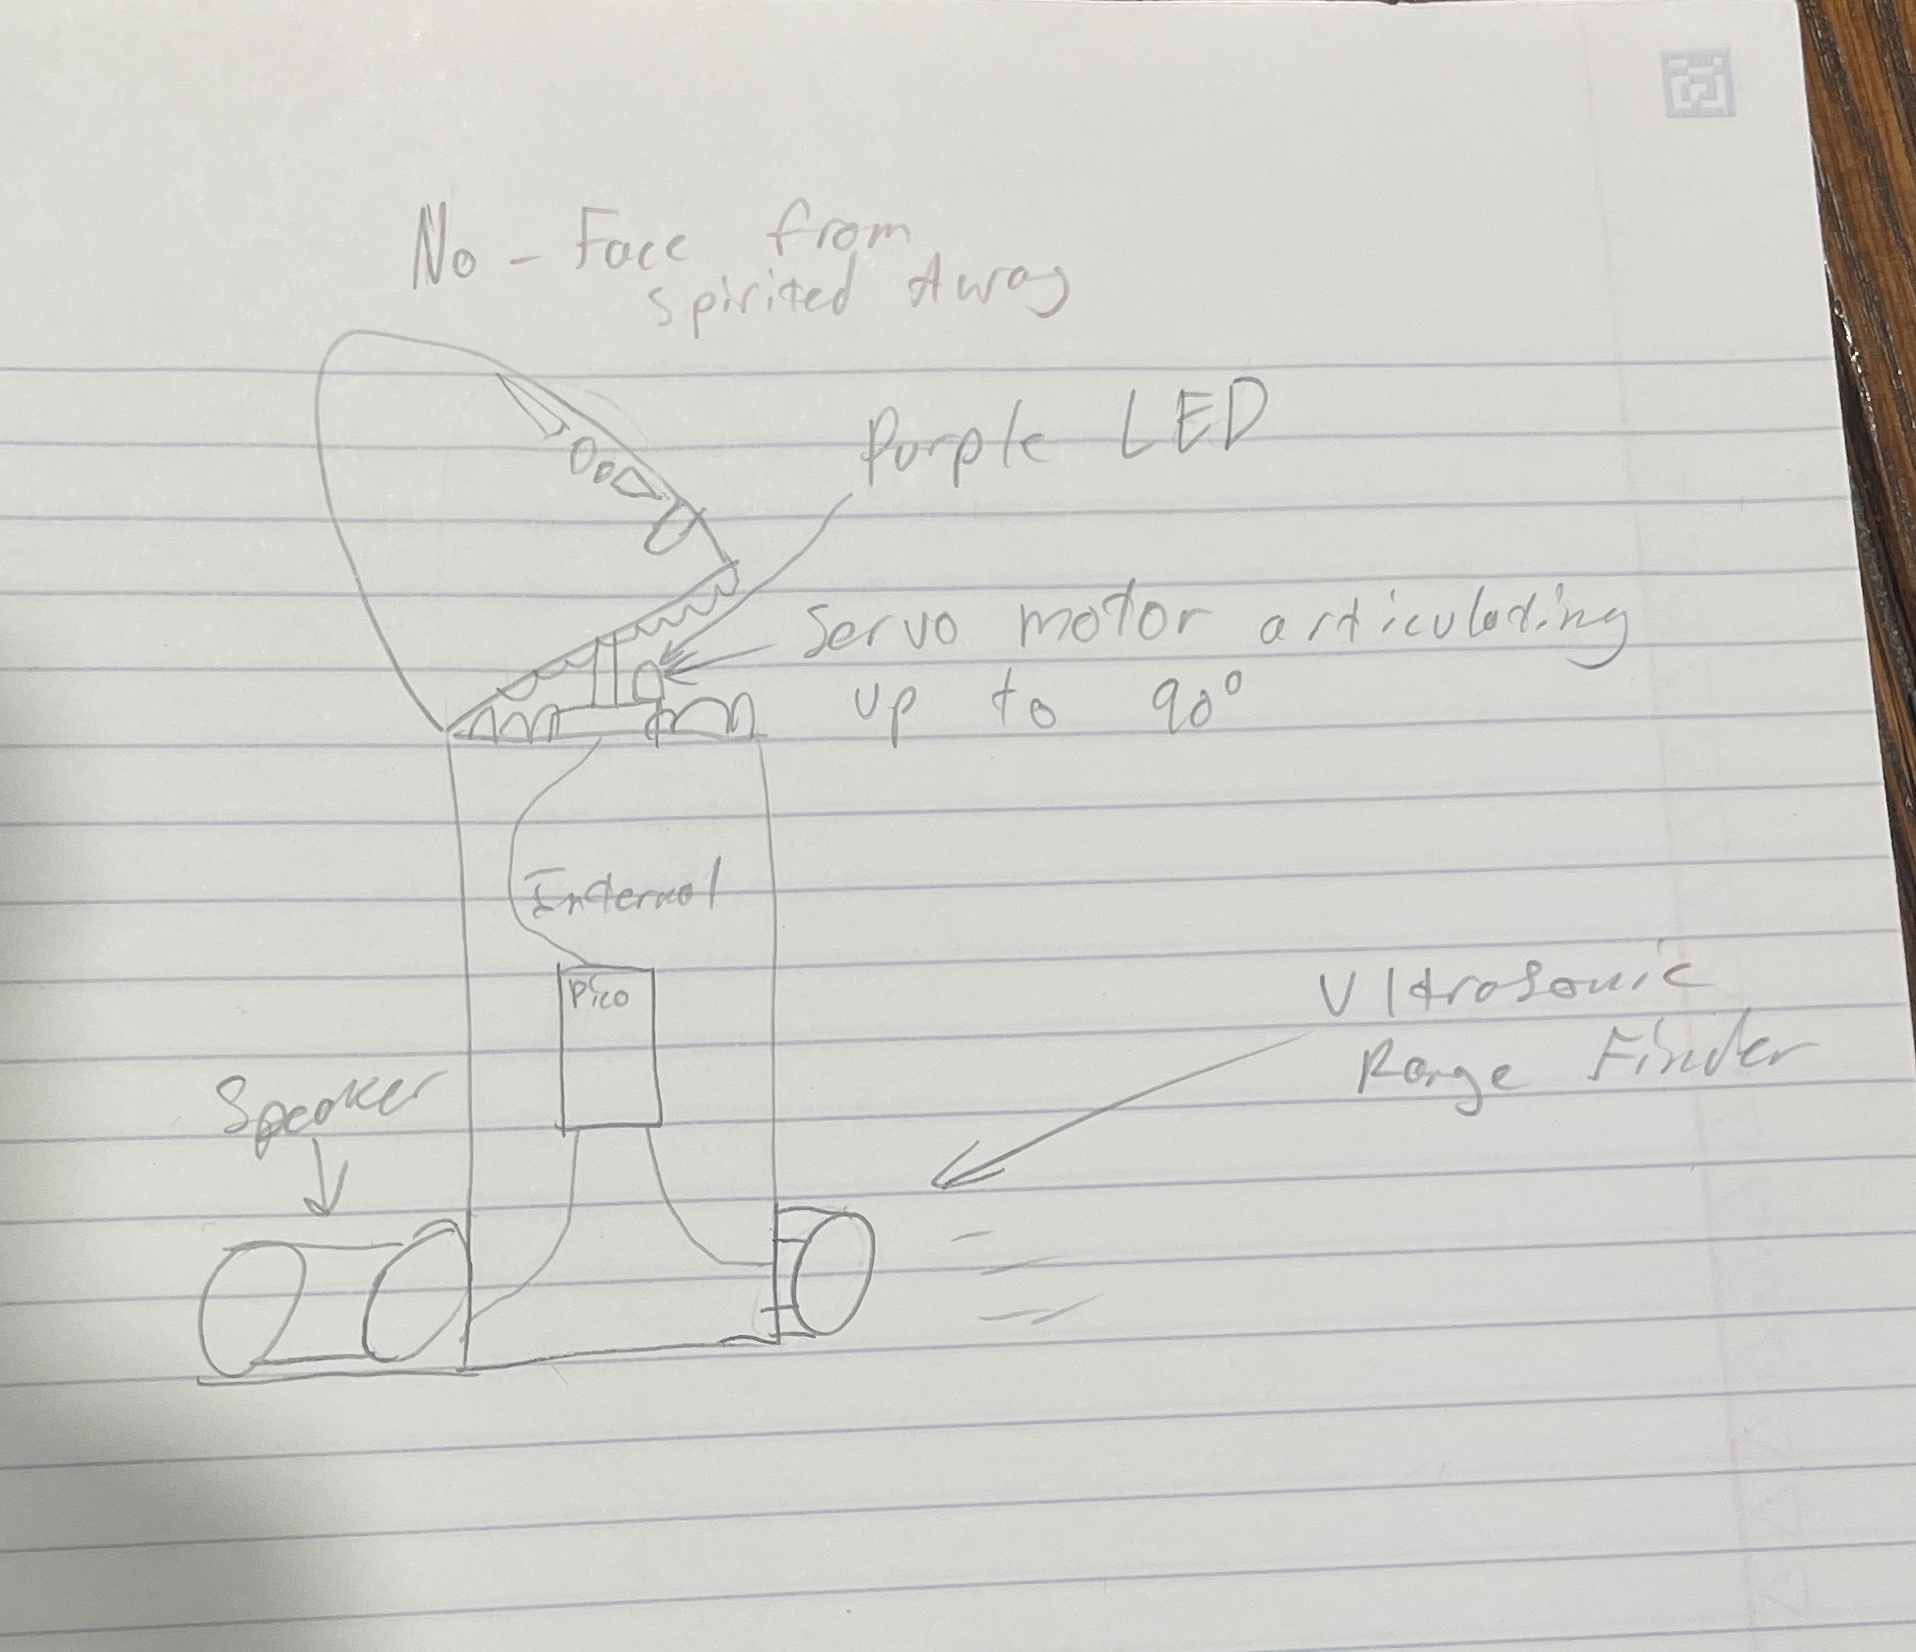 No - Face from
Spirited Away
Purple LED
Servo motor articulating
up to 90°
Internal
Pico
Speaker
Ultrasonic
Range Finder